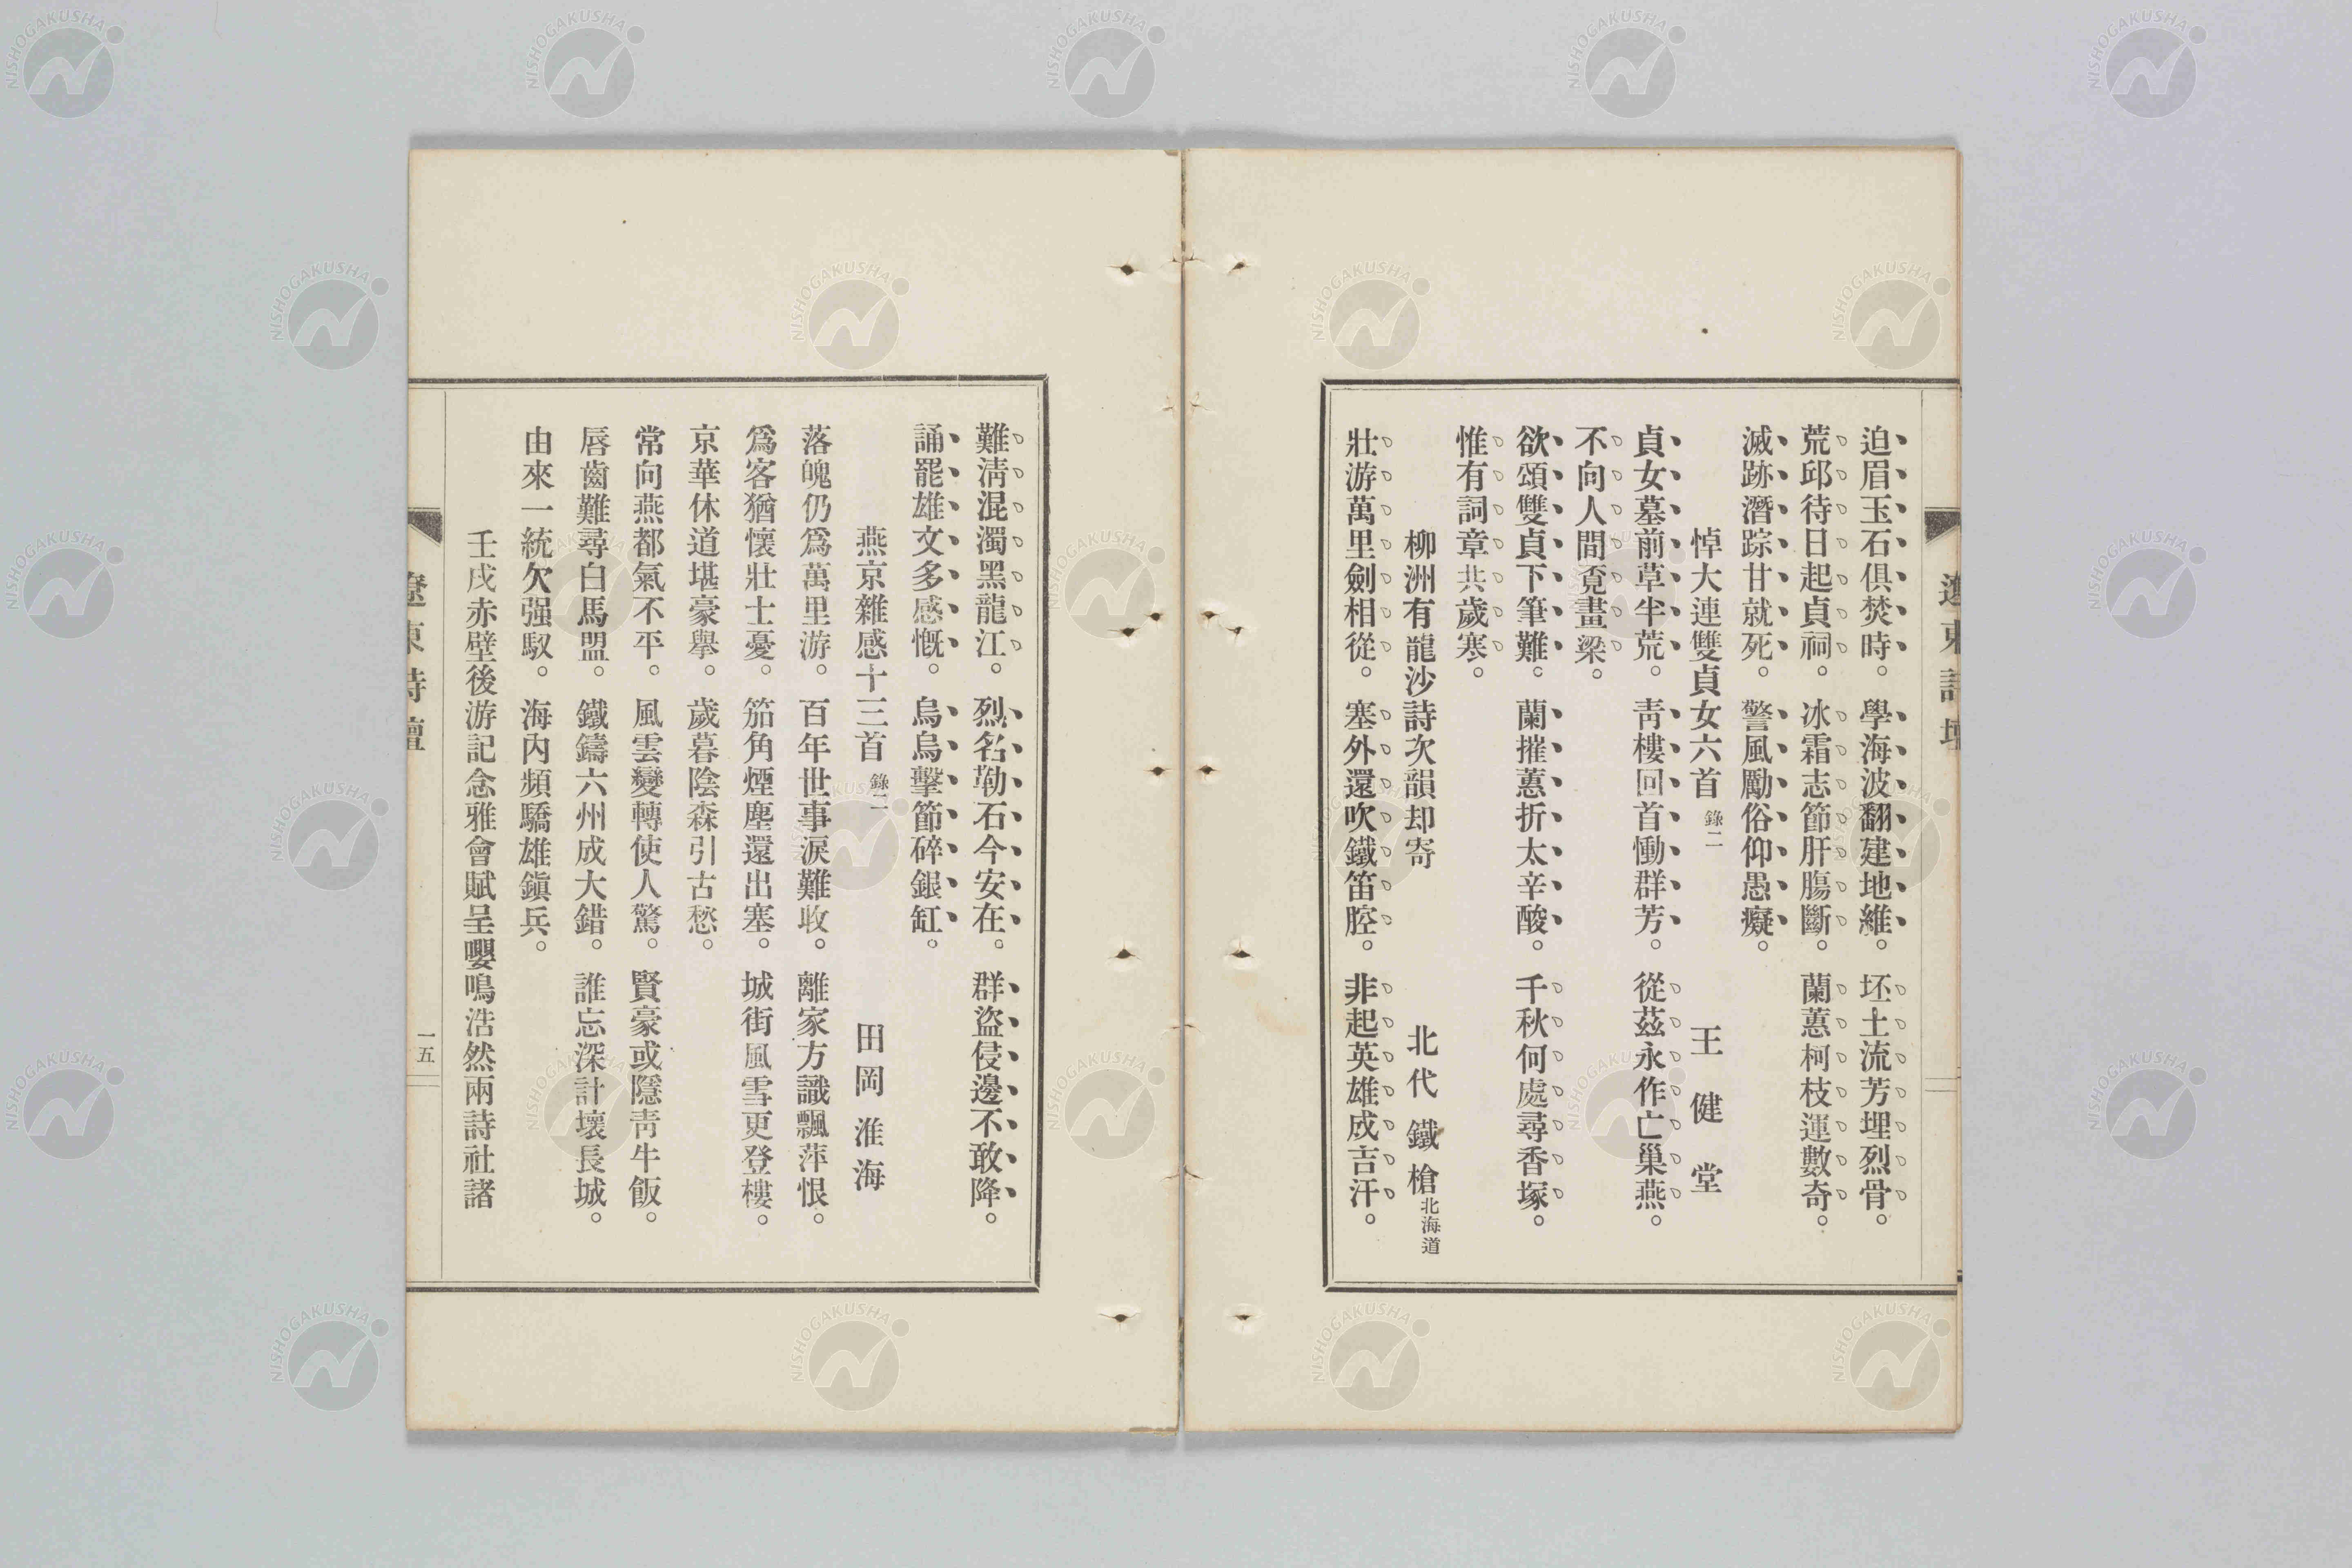 迫眉玉石俱焚時。學海波翻建地維。坯土流芳埋烈骨。
荒邱待日起貞祠。冰霜志節肝膓斷。蘭蕙柯枝運數奇。
滅跡潛踪甘就死。警風勵俗仰愚癡。
悼大連雙貞女六首 錄二 王健堂
貞女墓前草半荒。靑樓回首慟群芳。從茲永作亡巢燕。
不向人間覓畫梁。
欲頌雙貞下筆難。蘭摧蕙折太辛酸。千秋何處尋香塚。
惟有詞章共歲寒。
柳洲有龍沙詩次韻却寄 北代鐵槍 北海道
壯游萬里劍相從。塞外還吹鐵笛腔。非起英雄成吉汗。
難淸混濁黑龍江。烈名勒石今安在。群盜侵邊不敢降。
誦罷雄文多感慨。烏烏擊節碎銀缸。
燕京雜感十三首 錄二 田岡淮海
落魄仍爲萬里游。百年世事淚難收。離家方識飄萍恨。
爲客猶懷壯士憂。笳角煙塵還出塞。城街風雪更登樓。
京華休道堪豪擧。歲暮陰森引古愁。
常向燕都氣不平。風雲變轉使人驚。賢豪或隱靑牛飯。
唇齒難尋白馬盟。鐵鑄六州成大錯。誰忘深計壞長城。
由來一統欠强馭。海內頻驕雄鎭兵。
壬戌赤壁後游記念雅會賦呈嚶鳴浩然兩詩社諸
遼東詩壇
一五
NISHOGAKUSHA